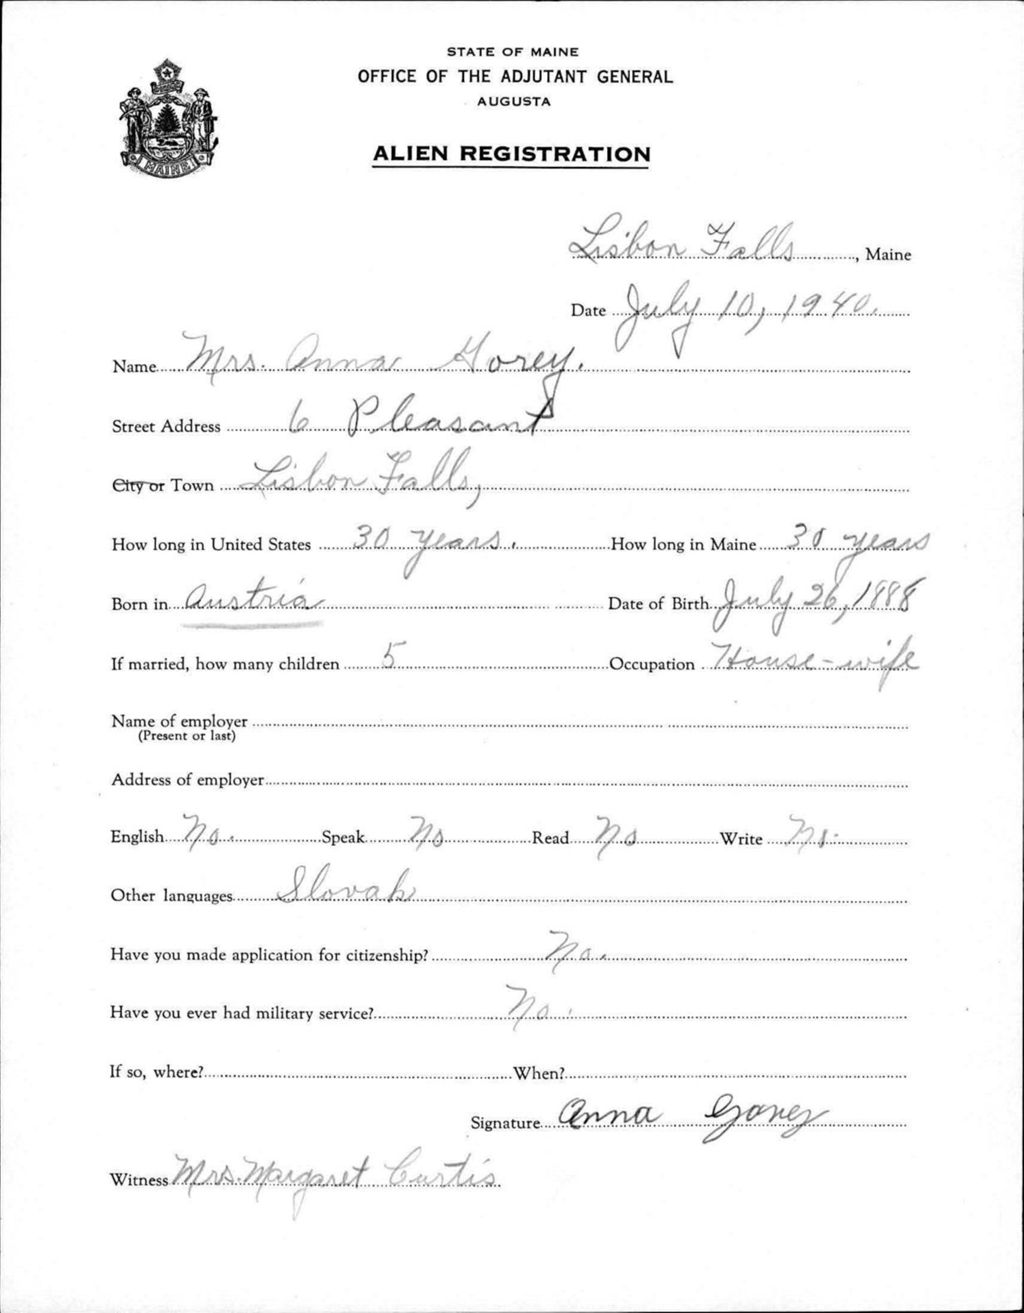 STATE OF MAINE
OFFICE OF THE ADJUTANT GENERAL
AUGUSTA
ALIEN REGISTRATION
MAINE
Lisbon Falls, Maine
Date July 10, 1940.
Name Mrs. Anna Gorey.
Street Address 6 Pleasant
City or Town Lisbon Falls,
How long in United States 30 years. How long in Maine 30 years
Born in Austria Date of Birth July 26, 1888
If married, how many children 5 Occupation House-wife
Name of employer
(Present or last)
Address of employer
English No. Speak No Read No Write No.
Other languages Slovak
Have you made application for citizenship? No.
Have you ever had military service? No.
If so, where? When?
Signature Anna Gorey
Witness Mrs. Margaret Curtis.